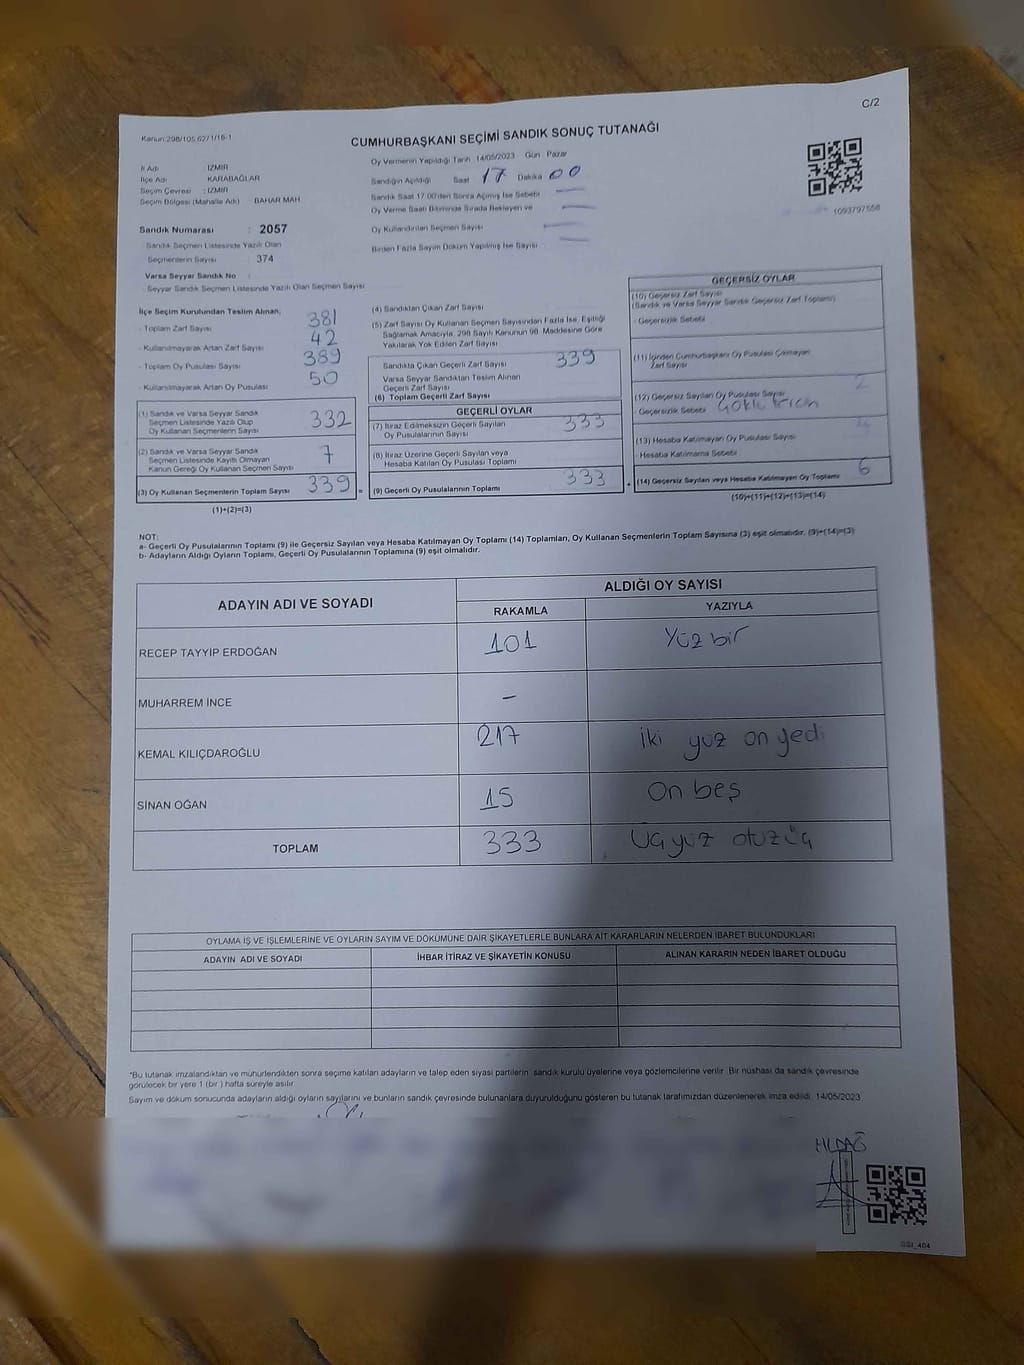 C/2
Kanun:298/105,6271/18-1
CUMHURBAŞKANI SEÇİMİ SANDIK SONUÇ TUTANAĞI
İl Adı : İZMİR
İlçe Adı : KARABAĞLAR
Seçim Çevresi : İZMİR
Seçim Bölgesi (Mahalle Adı) BAHAR MAH
Sandık Numarası : 2057
- Sandık Seçmen Listesinde Yazılı Olan
Seçmenlerin Sayısı : 374
Varsa Seyyar Sandık No
- Seyyar Sandık Seçmen Listesinde Yazılı Olan Seçmen Sayısı
Oy Vermenin Yapıldığı Tarih 14/05/2023 Gün : Pazar
Sandığın Açıldığı Saat 17 Dakika 00
Sandık Saat 17:00'den Sonra Açılmış İse Sebebi —
Oy Verme Saati Bitiminde Sırada Bekleyen ve —
Oy Kullandırılan Seçmen Sayısı —
Birden Fazla Sayım Döküm Yapılmış İse Sayısı —
1093797556
İlçe Seçim Kurulundan Teslim Alınan;
- Toplam Zarf Sayısı 381
- Kullanılmayarak Artan Zarf Sayısı 42
- Toplam Oy Pusulası Sayısı 389
- Kullanılmayarak Artan Oy Pusulası 50
(1) Sandık ve Varsa Seyyar Sandık
Seçmen Listesinde Yazılı Olup
Oy Kullanan Seçmenlerin Sayısı 332
(2) Sandık ve Varsa Seyyar Sandık
Seçmen Listesinde Kayıtlı Olmayan
Kanun Gereği Oy Kullanan Seçmen Sayısı 7
(3) Oy Kullanan Seçmenlerin Toplam Sayısı 339 =
(1)+(2)=(3)
(4) Sandıktan Çıkan Zarf Sayısı
(5) Zarf Sayısı Oy Kullanan Seçmen Sayısından Fazla İse, Eşitliği
Sağlamak Amacıyla, 298 Sayılı Kanunun 98. Maddesine Göre
Yakılarak Yok Edilen Zarf Sayısı
Sandıkta Çıkan Geçerli Zarf Sayısı 339
Varsa Seyyar Sandıktan Teslim Alınan
Geçerli Zarf Sayısı
(6) Toplam Geçerli Zarf Sayısı
GEÇERLİ OYLAR
(7) İtiraz Edilmeksizin Geçerli Sayılan
Oy Pusulalarının Sayısı 333
(8) İtiraz Üzerine Geçerli Sayılan veya
Hesaba Katılan Oy Pusulası Toplamı
(9) Geçerli Oy Pusulalarının Toplamı 333 +
GEÇERSİZ OYLAR
(10) Geçersiz Zarf Sayısı
(Sandık ve Varsa Seyyar Sandık Geçersiz Zarf Toplamı)
- Geçersizlik Sebebi
(11) İçinden Cumhurbaşkanı Oy Pusulası Çıkmayan
Zarf Sayısı
(12) Geçersiz Sayılan Oy Pusulası Sayısı 2
- Geçersizlik Sebebi
(13) Hesaba Katılmayan Oy Pusulası Sayısı 4
- Hesaba Katılmama Sebebi
(14) Geçersiz Sayılan veya Hesaba Katılmayan Oy Toplamı 6
(10)+(11)+(12)+(13)=(14)
NOT:
a- Geçerli Oy Pusulalarının Toplamı (9) ile Geçersiz Sayılan veya Hesaba Katılmayan Oy Toplamı (14) Toplamları, Oy Kullanan Seçmenlerin Toplam Sayısına (3) eşit olmalıdır. (9)+(14)=(3)
b- Adayların Aldığı Oyların Toplamı, Geçerli Oy Pusulalarının Toplamına (9) eşit olmalıdır.
ADAYIN ADI VE SOYADI ALDIĞI OY SAYISI
RAKAMLA YAZIYLA
RECEP TAYYİP ERDOĞAN 101 Yüz bir
MUHARREM İNCE –
KEMAL KILIÇDAROĞLU 217 iki yüz on yedi
SİNAN OĞAN 15 On beş
TOPLAM 333 Üç yüz otuz üç
OYLAMA İŞ VE İŞLEMLERİNE VE OYLARIN SAYIM VE DÖKÜMÜNE DAİR ŞİKAYETLERLE BUNLARA AİT KARARLARIN NELERDEN İBARET BULUNDUKLARI
ADAYIN ADI VE SOYADI İHBAR İTİRAZ VE ŞİKAYETİN KONUSU ALINAN KARARIN NEDEN İBARET OLDUĞU
*Bu tutanak imzalandıktan ve mühürlendikten sonra seçime katılan adayların ve talep eden siyasi partilerin sandık kurulu üyelerine veya gözlemcilerine verilir. Bir nüshası da sandık çevresinde
görülecek bir yere 1 (bir ) hafta süreyle asılır.
Sayım ve döküm sonucunda adayların aldığı oyların sayılarını ve bunların sandık çevresinde bulunanlara duyurulduğunu gösteren bu tutanak tarafımızdan düzenlenerek imza edildi. 14/05/2023